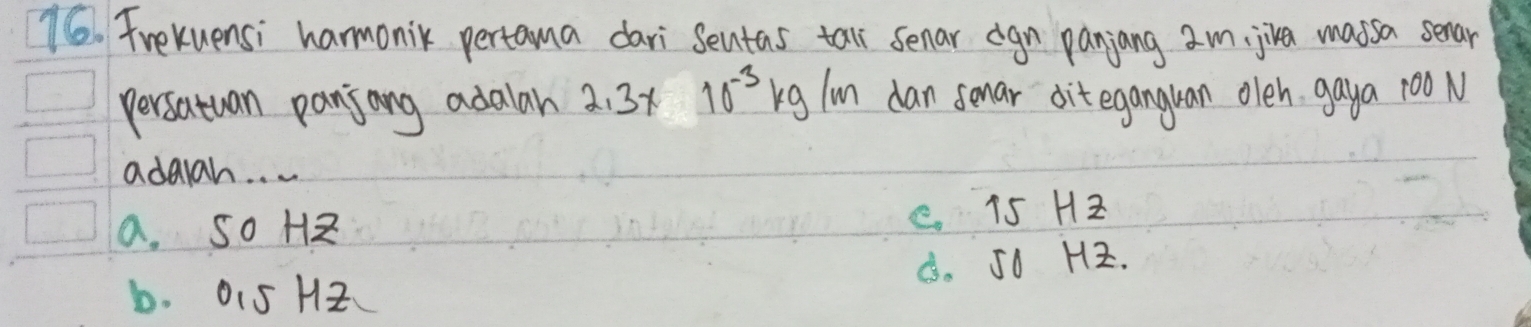 16. Frekuensi harmonik pertama dari seutas tali senar dgn panjang 2m, jika massa senar
persatuan panjang adalah 2,3x 10⁻³ kg/m dan senar ditegangkan oleh gaya 100 N
adalah....
a. 50 HZ
c. 15 HZ
b. 0,5 HZ
d. 50 HZ.